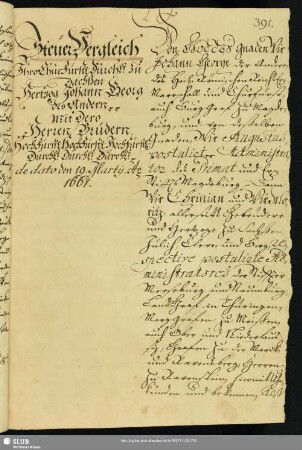 391.
Steuer Vergleich
Ihro Churfürstl. Durchl. zu
Sachßen
Hertzog Johann Georg
des Andern
Mit Dero
Herren Brüdern
Hochfürstl. Hochfürstl. Hochfürstl.
Durchl. Durchl. Durchl.
de dato den 19. Marty Ao.
1661.
Von Gottes Gnaden Wir
Johann George der Andere
des Heil. Römischen Reichs Ertz
Marschall und Churfürst
auch Burggraf zu Magde
burg, und von deßelben
Gnaden, Wir Augustus
postulirter Administra
tor des Primat und Erz
Stiffts Magdeburg, Dann
Wir Christian und Wir Mo
ritz, allerseits Gebrüdere
und Hertzoge zu Sachßen
Jülich, Cleve und Berg, re
spective postulirte Ad
ministratores der Stiffter
Merseburg und Naumburg
Landgrafen in Thüringen
Marggrafen zu Meißen
auch Ober und Nieder Lau
sitz, Grafen zu der Marck
und Ravensberg, Herren
zu Ravenstein, hiermit
kunden und bekennen, daß
SLUB